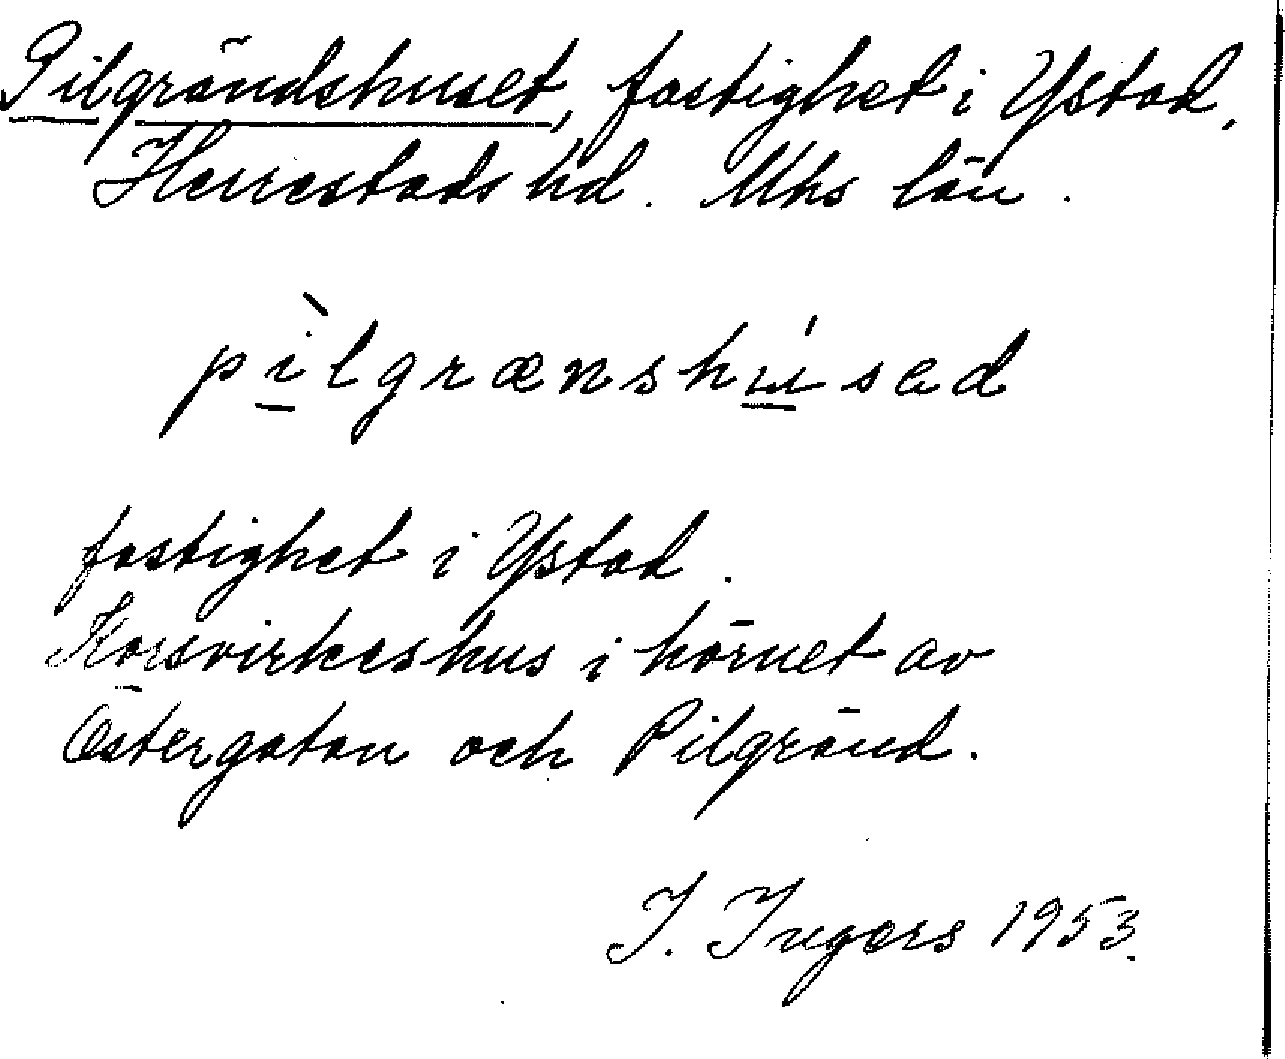 Pilgrändshuset, fastighet i Ystad,
Herrestads hd. Mhs län.
pìlgrænshúsad
fastighet i Ystad.
Korsvirkeshus i hörnet av
Östergatan och Pilgränd.
I. Ingers 1953.